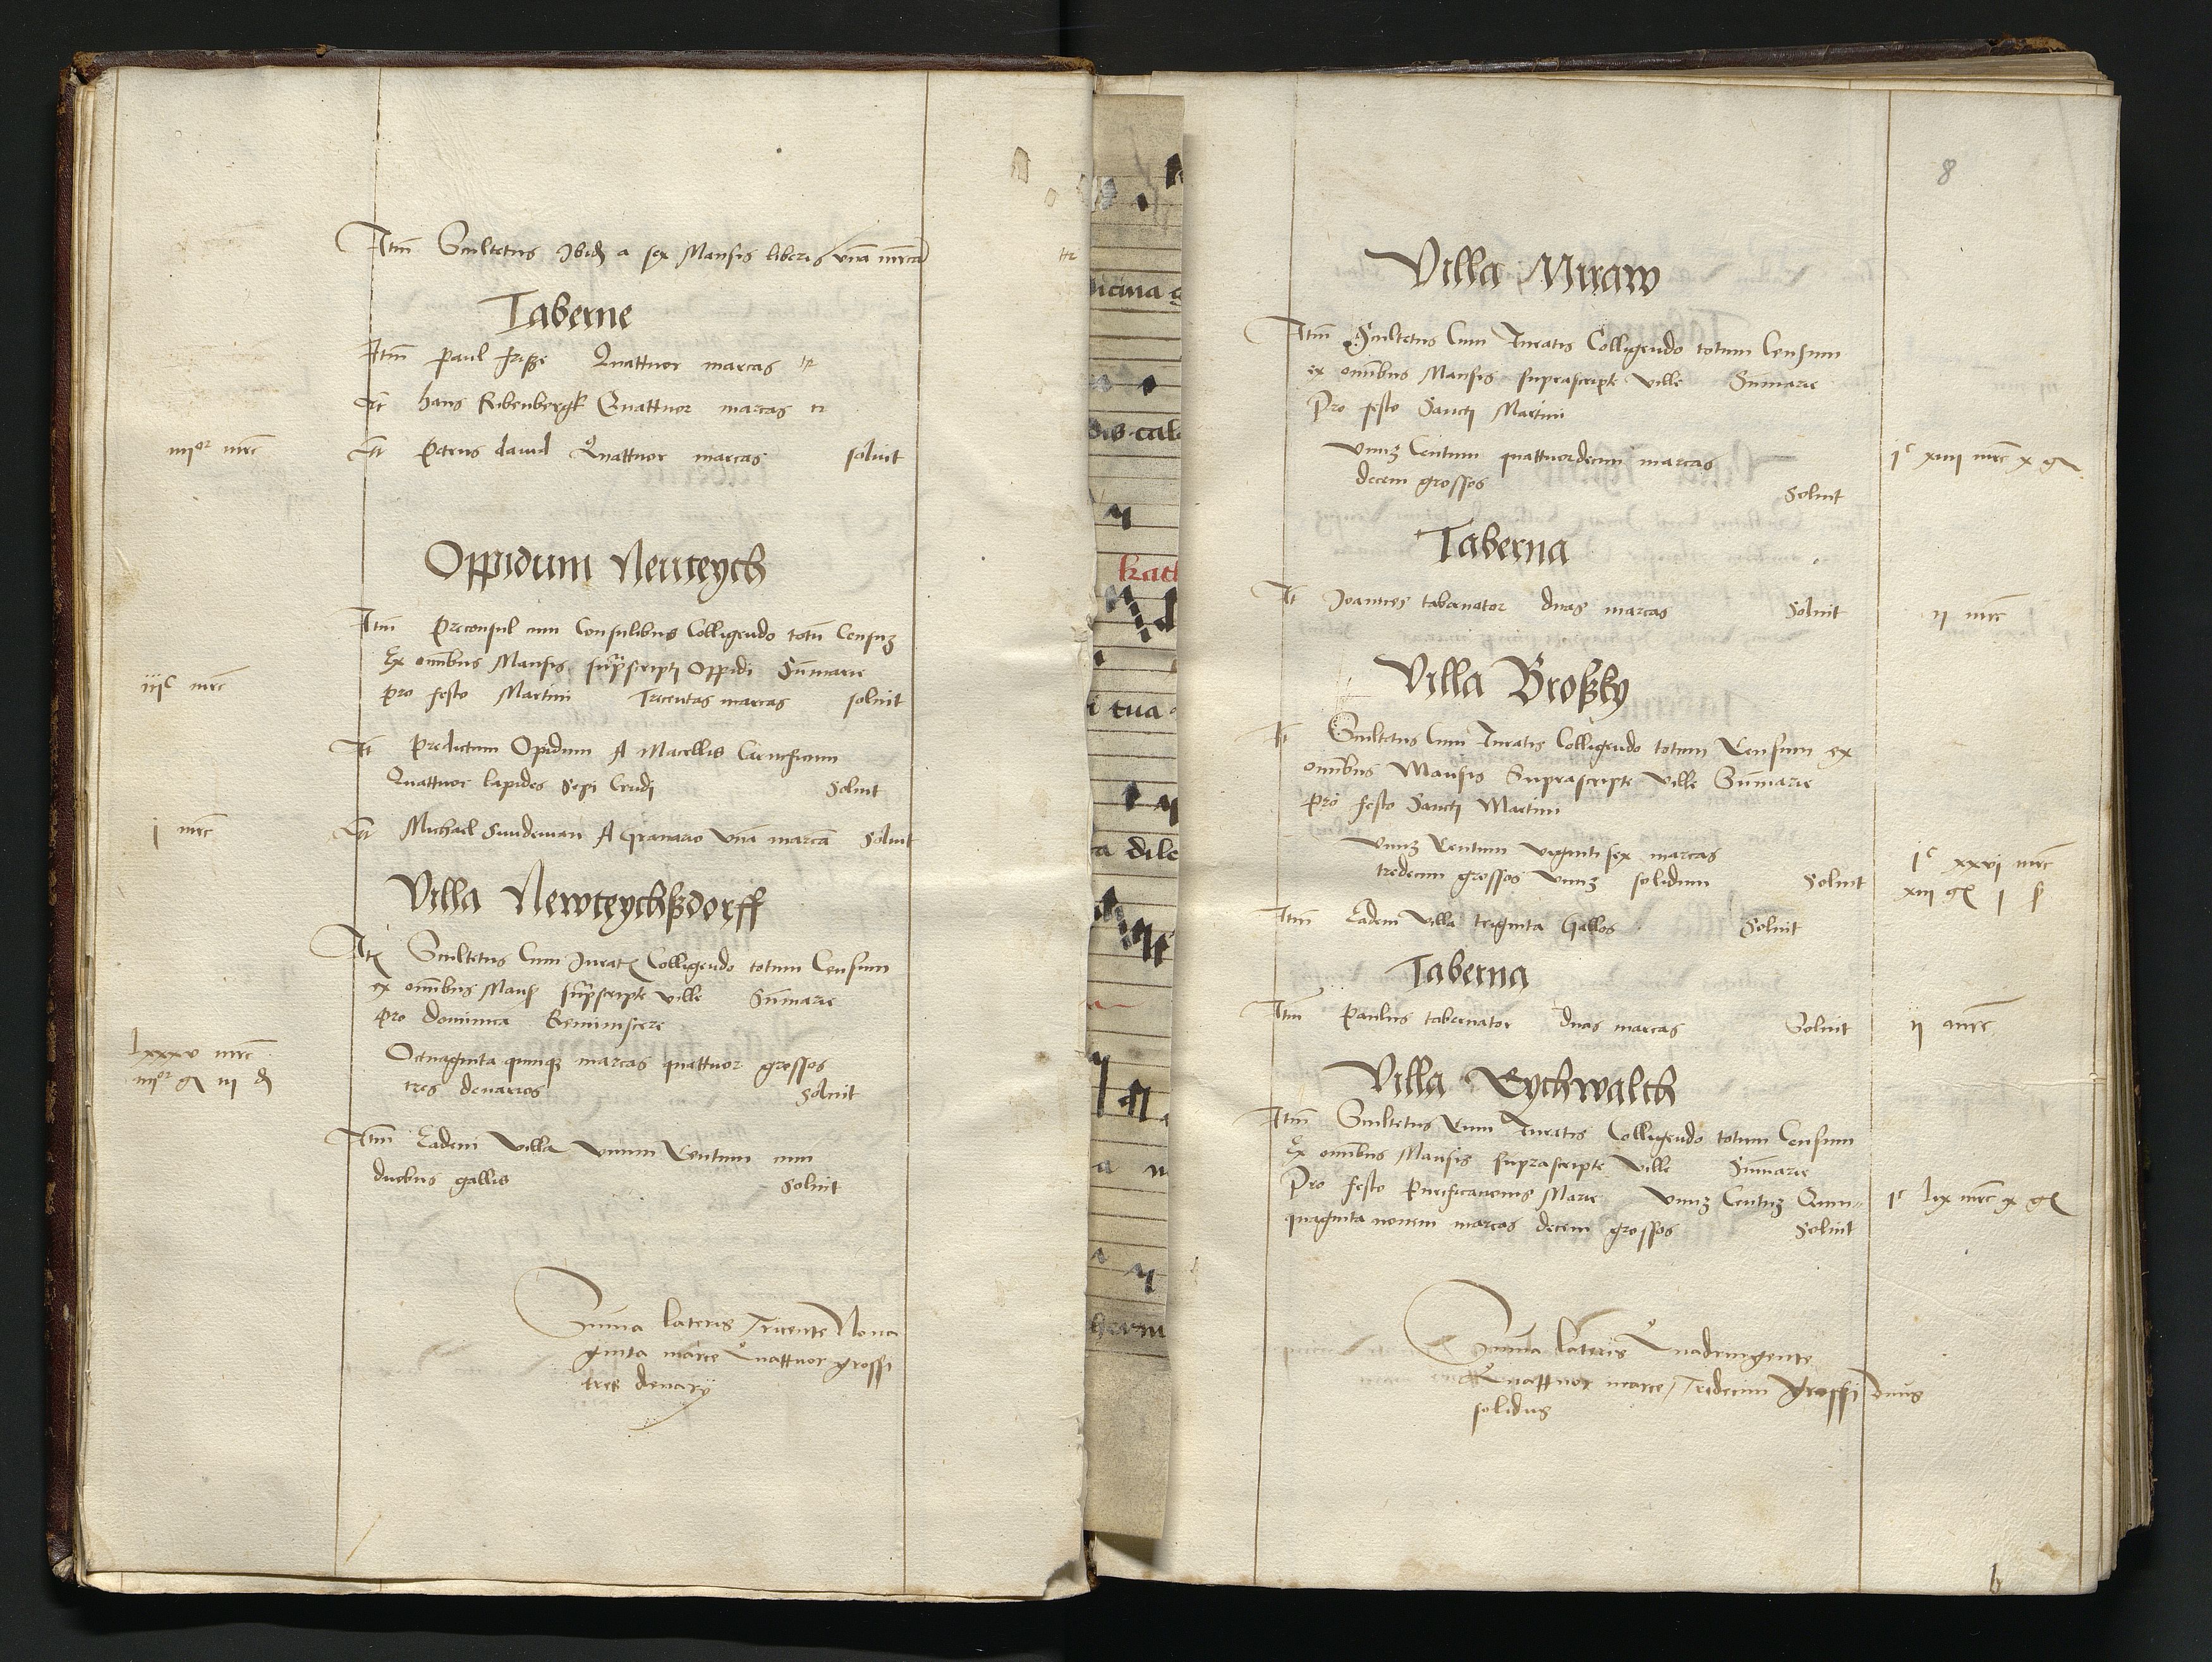 Itm Scultetus Ibid a sex Mansis liberis vna mrca
Taberne
Itm paul frisze Quattuor marcas tr
It hans Ribenbergk Quattuor marcas tr
iiiior mrc It Petrus david Quattuor marcas soluit
Oppidum Newteych
Itm Preconsul cum Consulibus Colligendo totu Censuz
Ex omibus Mansis suprscripti Oppidi Sumarie
iiic mrc pro festo Martini Trecentas marcas soluit
It Predictum Opidum A Macellis Carnificum
Quattuor lapides Sepi Crudi Soluit
i mrc It Michael Sundeman A Granario vna marca Soluit
Villa Newteychszdorff
Itm Scultetus Cum Jurat Colligendo totum Censum
ex omibus Mans suprscripte ville Sumarie
pro dominica Reminiscere
lxxxv mrc Octuaginta quinq marcas quattuor grossos
iiiior g iii d tres denarios Soluit
Itm Eadem villa vnum Centum cum
duobus gallis Soluit
Suma lateris Tricente Nona
ginta marce Quattuor grossi
tres denarij
8
Villa Miraw
Itm Scultetus Cum Iuratis Colligendo totum Censum
ex omibus Mansis suprascripte ville Sumarie
Pro festo Sancti Martini
vnuz Centum quattuordecim marcas ic xiiii mrc x g
decem grossos Soluit
Taberna
It Joannes tabernator duas marcas Soluit ii mrc
Villa Broszky
It Scultetus Cum Iuratis Colligendo totum Censum ex
omibus Mansis Suprascripte ville Sumarie
pro festo Sancti Martini
vnuz Centum viginti sex marcas ic xxvi mrc
tredecim grossos vnuz solidum Soluit xiii g i s
Itm Eadem villa triginta Gallos Soluit
Taberna
Itm Paulus tabernator duas marcas Soluit ii mrc
Villa Eychwalth
Itm Scultetus Cum Iuratis Colligendo totum Censum
Ex omibus Mansis suprascripte ville Sumarie
Pro festo Purificationis Marie vnuz Centuz Quin- ic lix mrc x g
quaginta nouem marcas decem grossos Soluit
Suma lateris Quadringente
Quattuor marce Tredecim grossi vnus
solidus
b